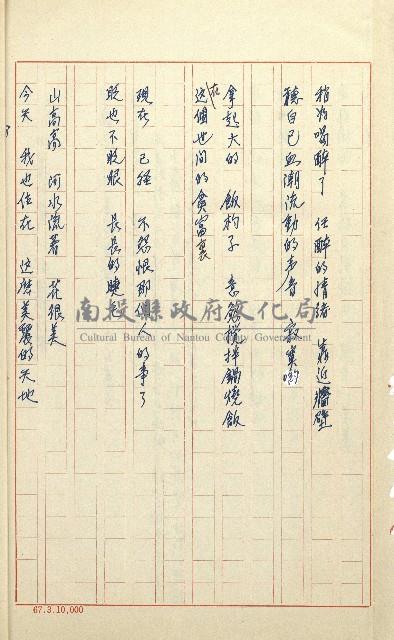 稍為喝醉了　任醉的情緒　靠近牆壁
聽自己血潮流動的声音　寂寞喲
拿起大的　飯杓子　意欲攪拌鍋燒飯
在這個世间的貧富裏
現在　已経　不怨恨那個人的事了
眨也不眨眼　長長的睫
山高高　河水流著　花很美
今天　我也住在　這座美麗的天地
南投縣政府文化局
Cultural Bureau of Nantou County Government
67.3.10,000